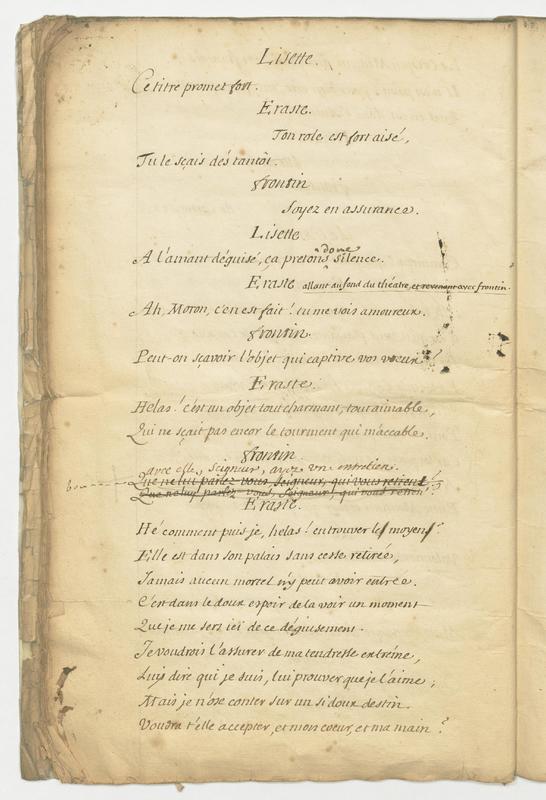 Lisette.
Ce titre promet fort.
Eraste.
Ton role est fort aisé,
Tu le sçais dés tantôt.
frontin
Soyez en assurance.
Lisette
A l'amant déguisé, ça pretons donc silence.
Eraste allant au fond du théatre, et revenant avec frontin.
Ah, Moron, c'en est fait! tu me vois amoureux.
frontin.
Peut-on sçavoir l'objet qui captive vos vœux?
Eraste.
Helas! c'est un objet tout charmant, tout aimable,
Qui ne sçait pas encor le tourment qui m'accable.
frontin.
avec elle, seigneur, ayez un entretien.
Que ne lui parlez vous, seigneur, qui vous retient?
Que ne luy parlez-vous, seigneur, qui vous retien?
Eraste.
Hé comment puis-je, helas! en trouver les moyens?
Elle est dans son palais sans cesse retirée,
Jamais aucun mortel n'y peut avoir entrée.
C'est dans le doux espoir de la voir un moment
Que je me sers ici de ce déguisement.
Je voudrois l'assurer de ma tendresse extréme,
Luy dire qui je suis, lui prouver que je l'aime;
Mais je n'ose conter sur un si doux destin.
Voudra t'elle accepter, et mon coeur, et ma main?